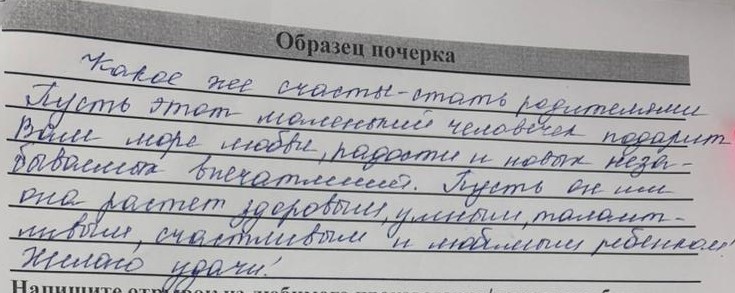 Образец почерка
Какое же счасты-стать родителями
Пусть этот маленький человечек подарит
Вам море любви, радости и новых неза-
бываемых впечатлений. Пусть он или
она растет здоровым, умным, талант-
ливым, счастливым и любимым ребенком!
Желаю удачи!
Напишите отрывок из любимого